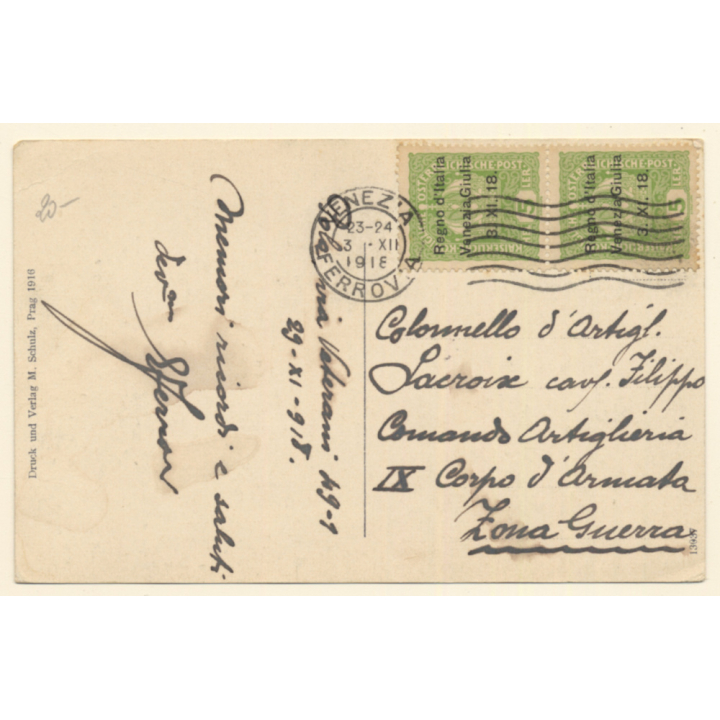 20-
Pola via Veterani 49-1
29-XI-918.
Memori ricordi e saluti
dev.mo
VENEZIA
23-24
3 · XII
1918
FERROVIA
Regno d'Italia
Venezia Giulia
3. XI. 18.
Regno d'Italia
Venezia Giulia
3. XI. 18.
5
5
Colonnello d'Artigl.
Lacroix cav. Filippo
Comando Artiglieria
IX Corpo d'Armata
Zona Guerra
Druck und Verlag M. Schulz, Prag 1916
13937